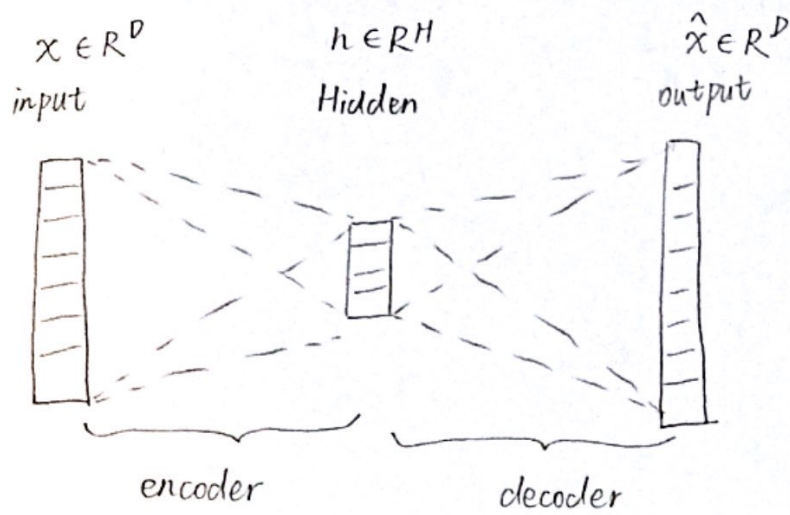 x ∈ R^D
input
h ∈ R^H
Hidden
x̂ ∈ R^D
output
encoder
decoder